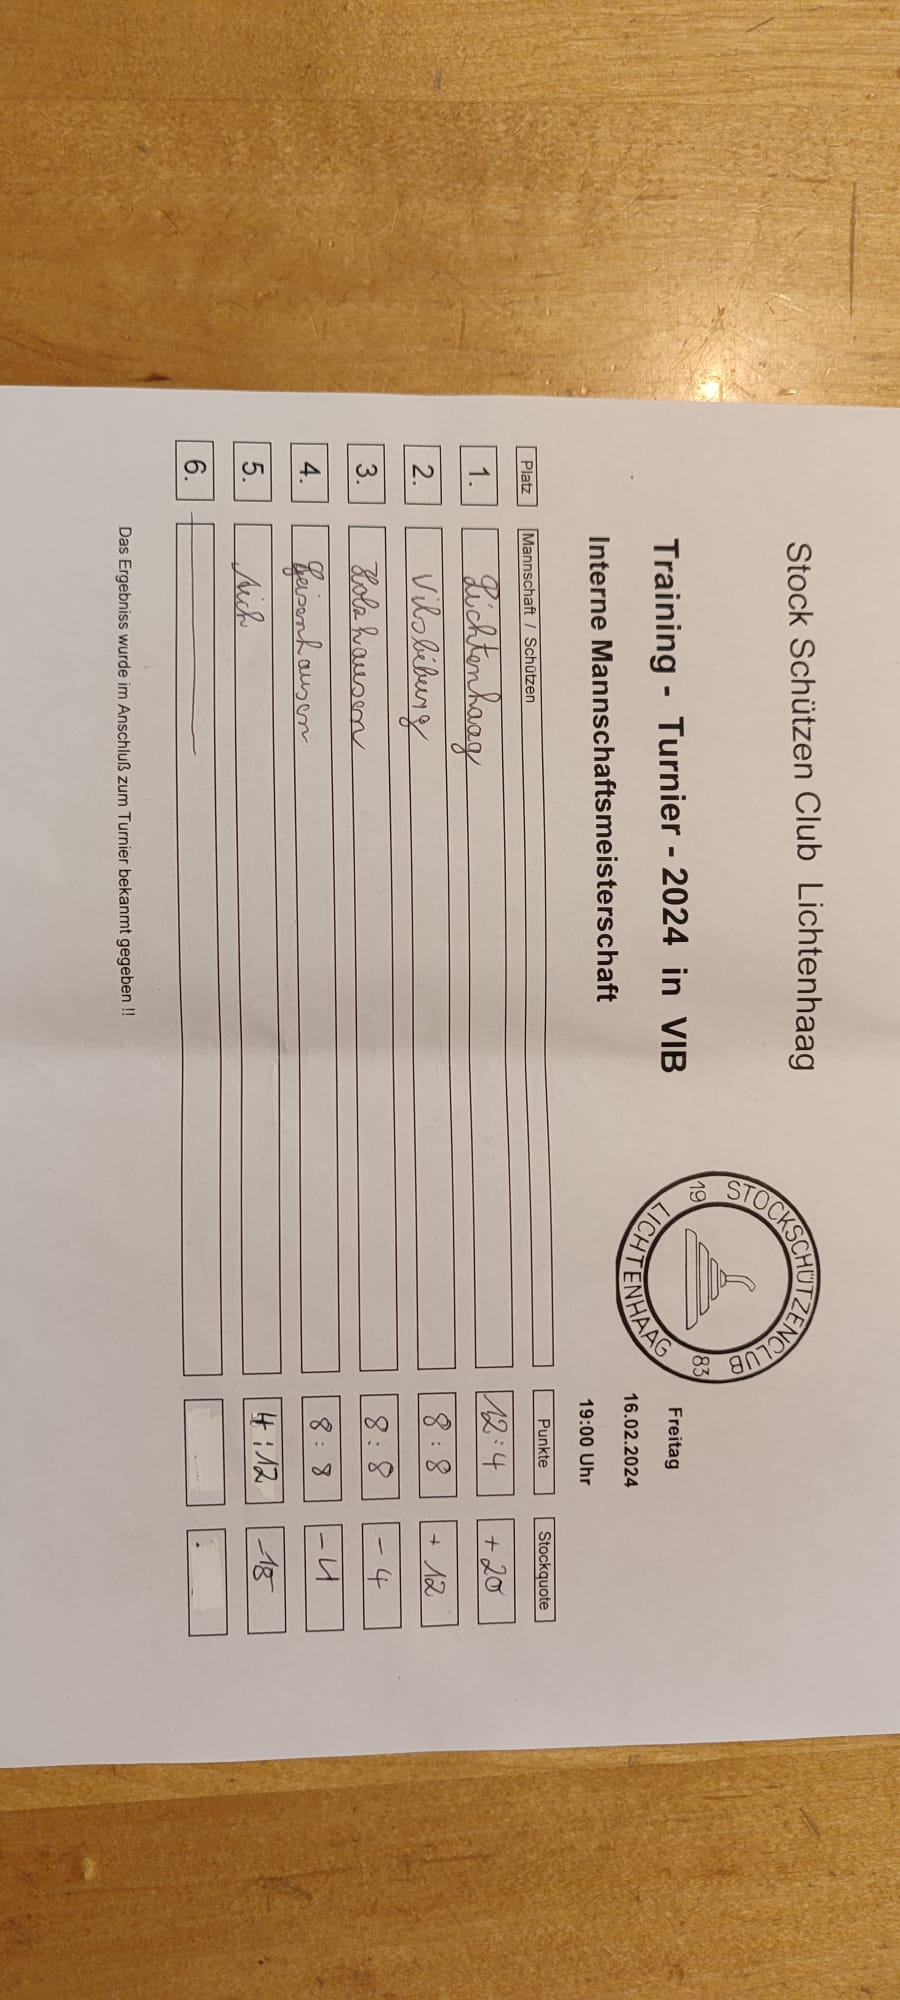 Stock Schützen Club Lichtenhaag
STOCKSCHÜTZENCLUB
19 83
LICHTENHAAG
Training - Turnier - 2024 in VIB
Freitag
Interne Mannschaftsmeisterschaft
16.02.2024
19:00 Uhr
Platz Mannschaft / Schützen Punkte Stockquote
1. Lichtenhaag 12:4 +20
2. Vilsbiburg 8:8 +12
3. Holzhausen 8:8 -4
4. Geisenhausen 8:8
5. Aich 4:12 -18
6.
Das Ergebniss wurde im Anschluß zum Turnier bekanmt gegeben !!